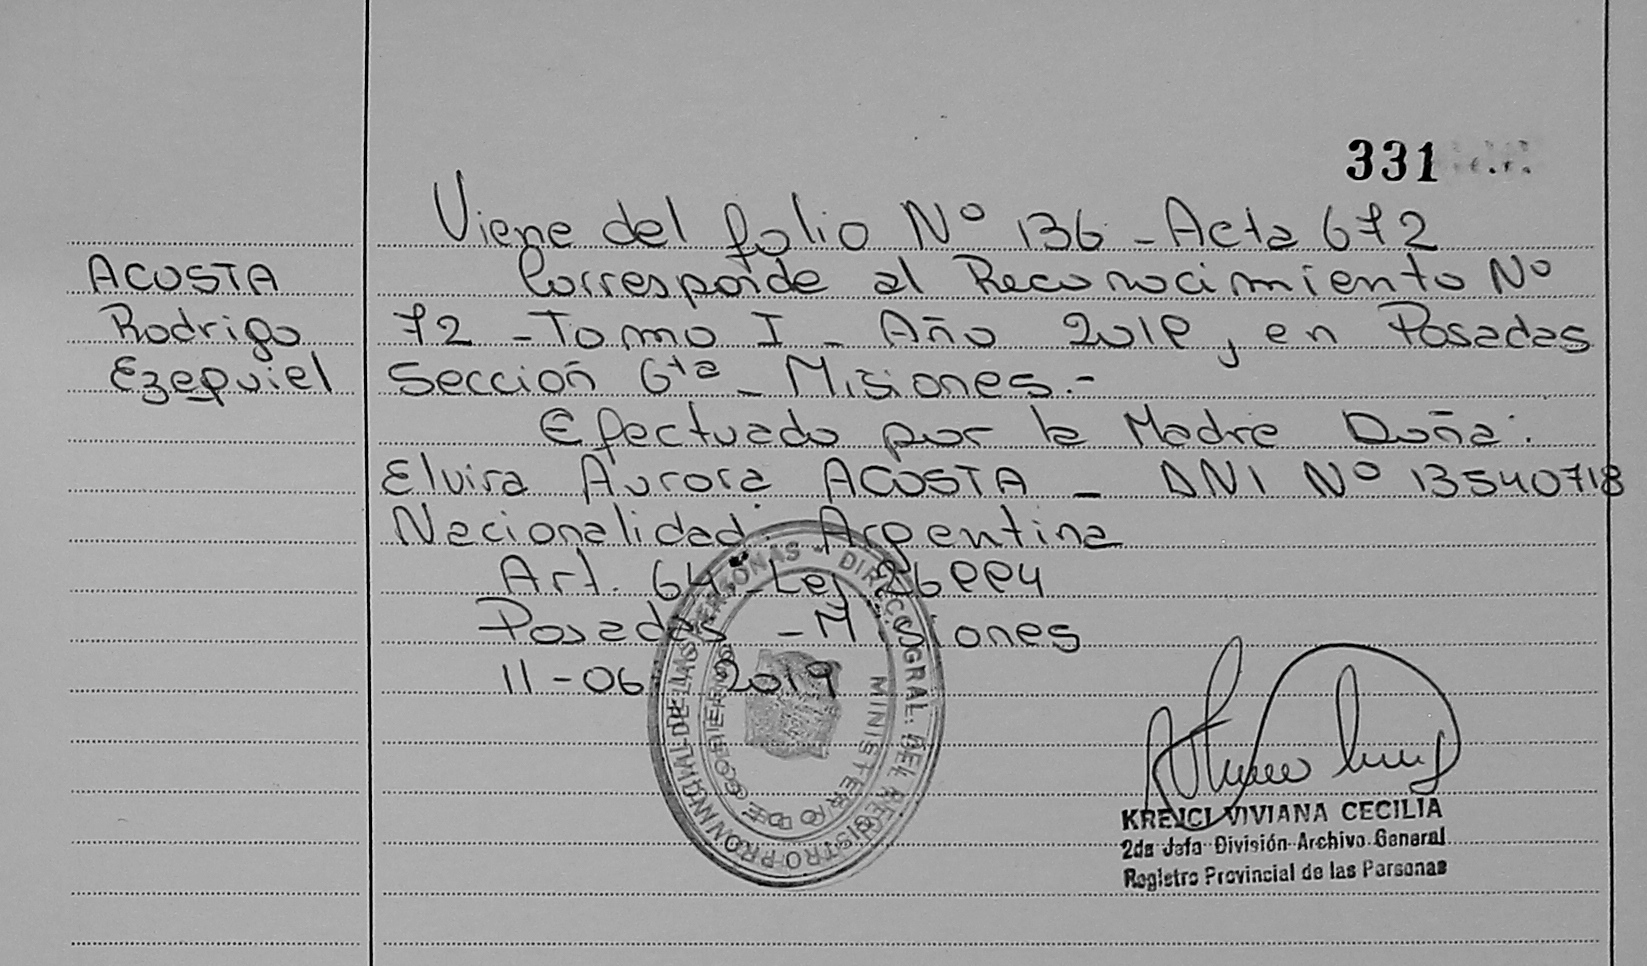 331
ACOSTA
Rodrigo
Ezequiel
Viene del folio Nº 136 - Acta 672
Corresponde al Reconocimiento Nº
72 - Tomo I - Año 2019, en Posadas
Sección 6ta - Misiones.-
Efectuado por la Madre Doña:
Elvira Aurora ACOSTA - DNI Nº 13540718
Nacionalidad: Argentina
Art. 64 - Ley 26994
Posadas - Misiones
11-06 2019
DIREC. GRAL. DEL REGISTRO PROVINCIAL DE LAS PERSONAS
MINISTERIO DE GOBIERNO
KREJCI VIVIANA CECILIA
2da Jefa División Archivo General
Registro Provincial de las Personas